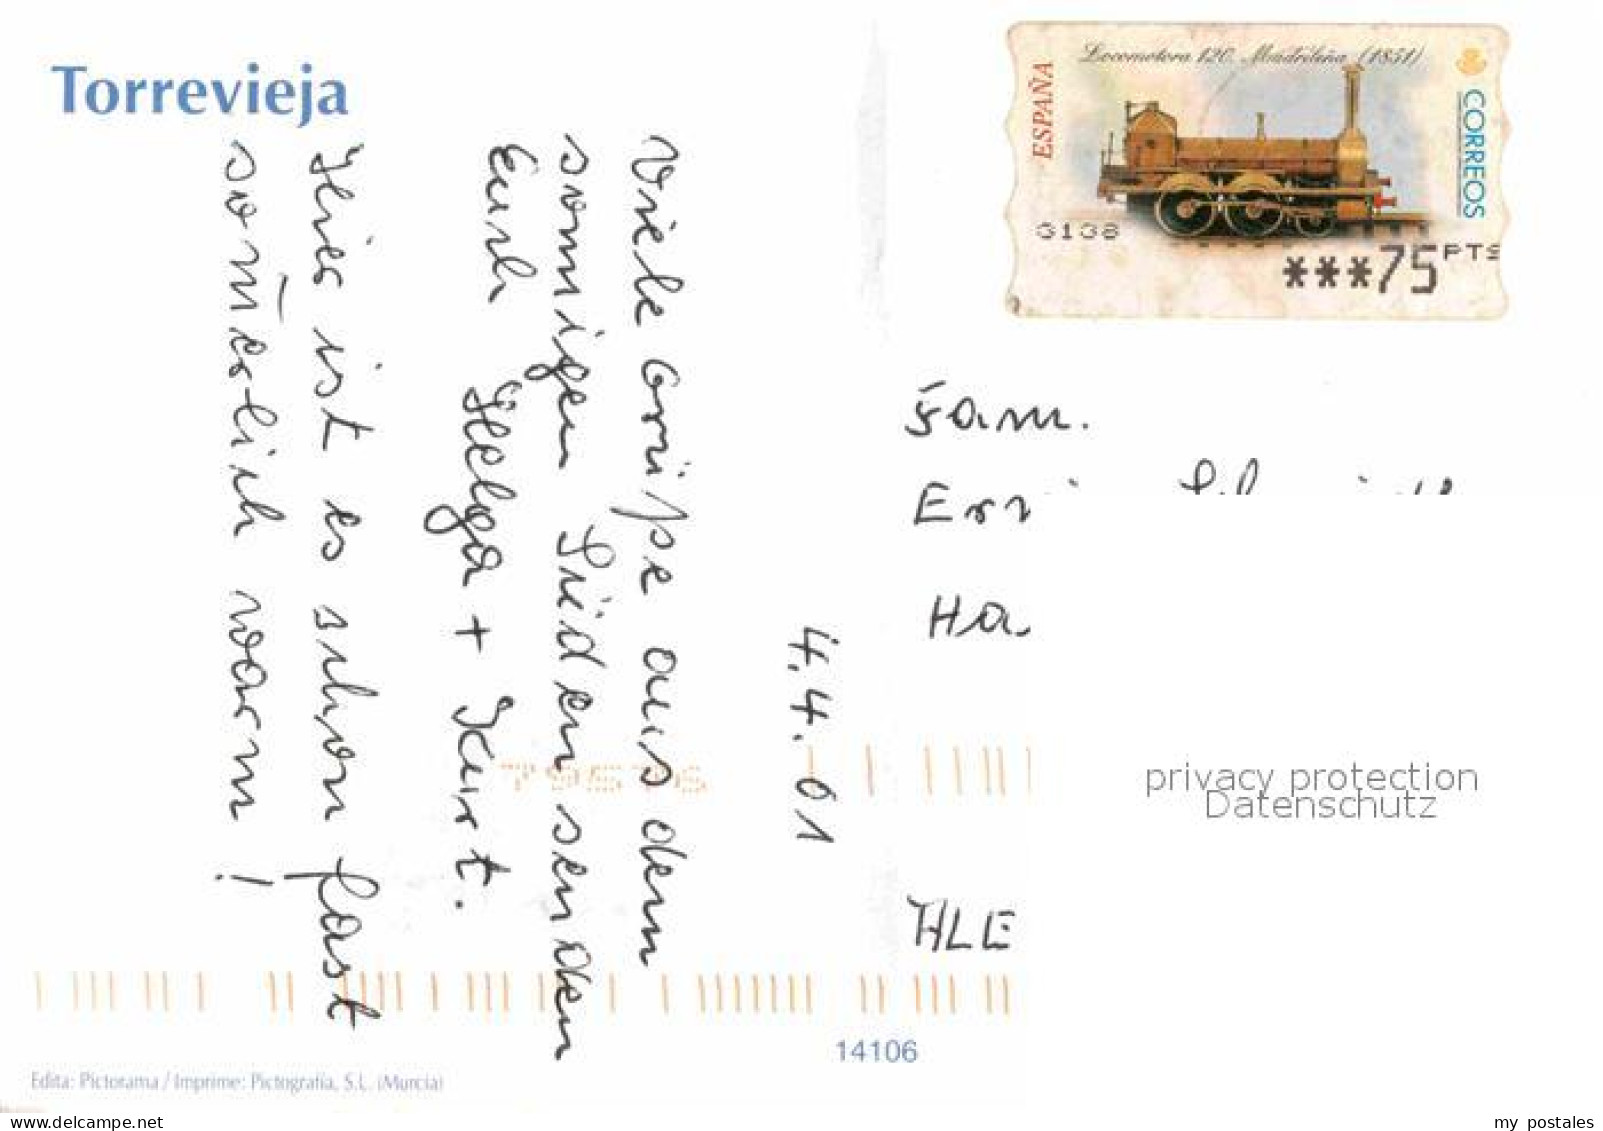 Torrevieja
Locomotora 120. Madrileña (1851)
ESPAÑA
CORREOS
0108
***75 PTS
4.4.01
Viele Grüße aus dem
sonnigen Süden senden
Euch Helga + Kurt.
Hier ist es schon fast
som̄erlich warm!
Fam.
Ha
ALE
privacy protection
Datenschutz
14106
Edita: Pictorama / Imprime: Pictografía, S.L. (Murcia)
www.delcampe.net
my postales